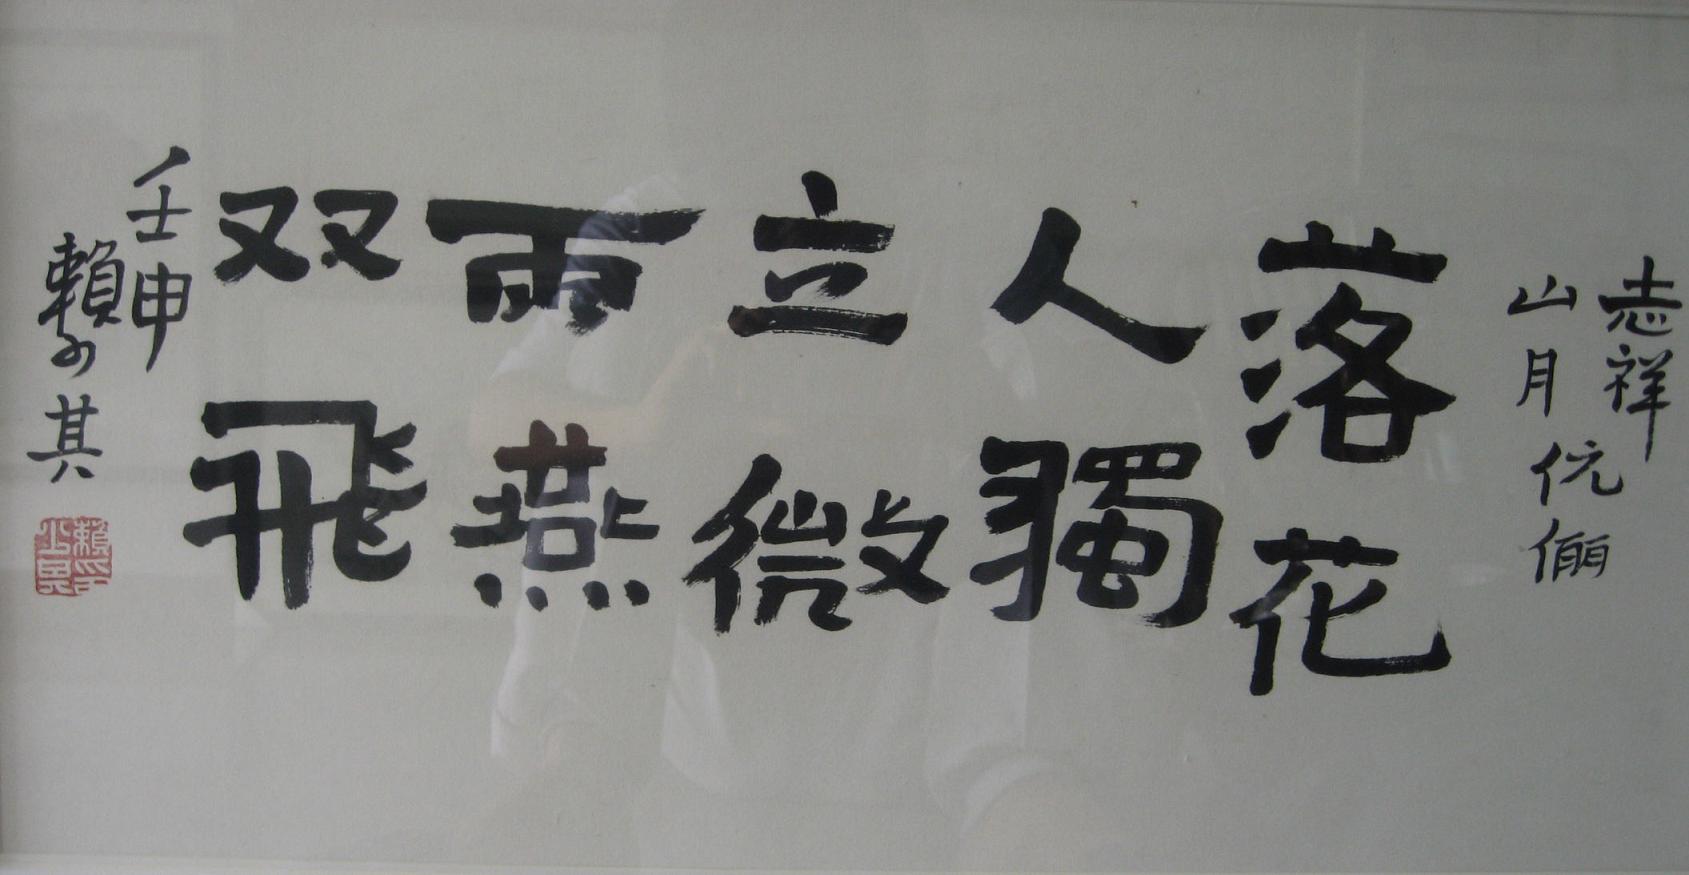 志祥
山月伉儷
落花
人獨
立微
雨燕
双飛
壬申
賴少其